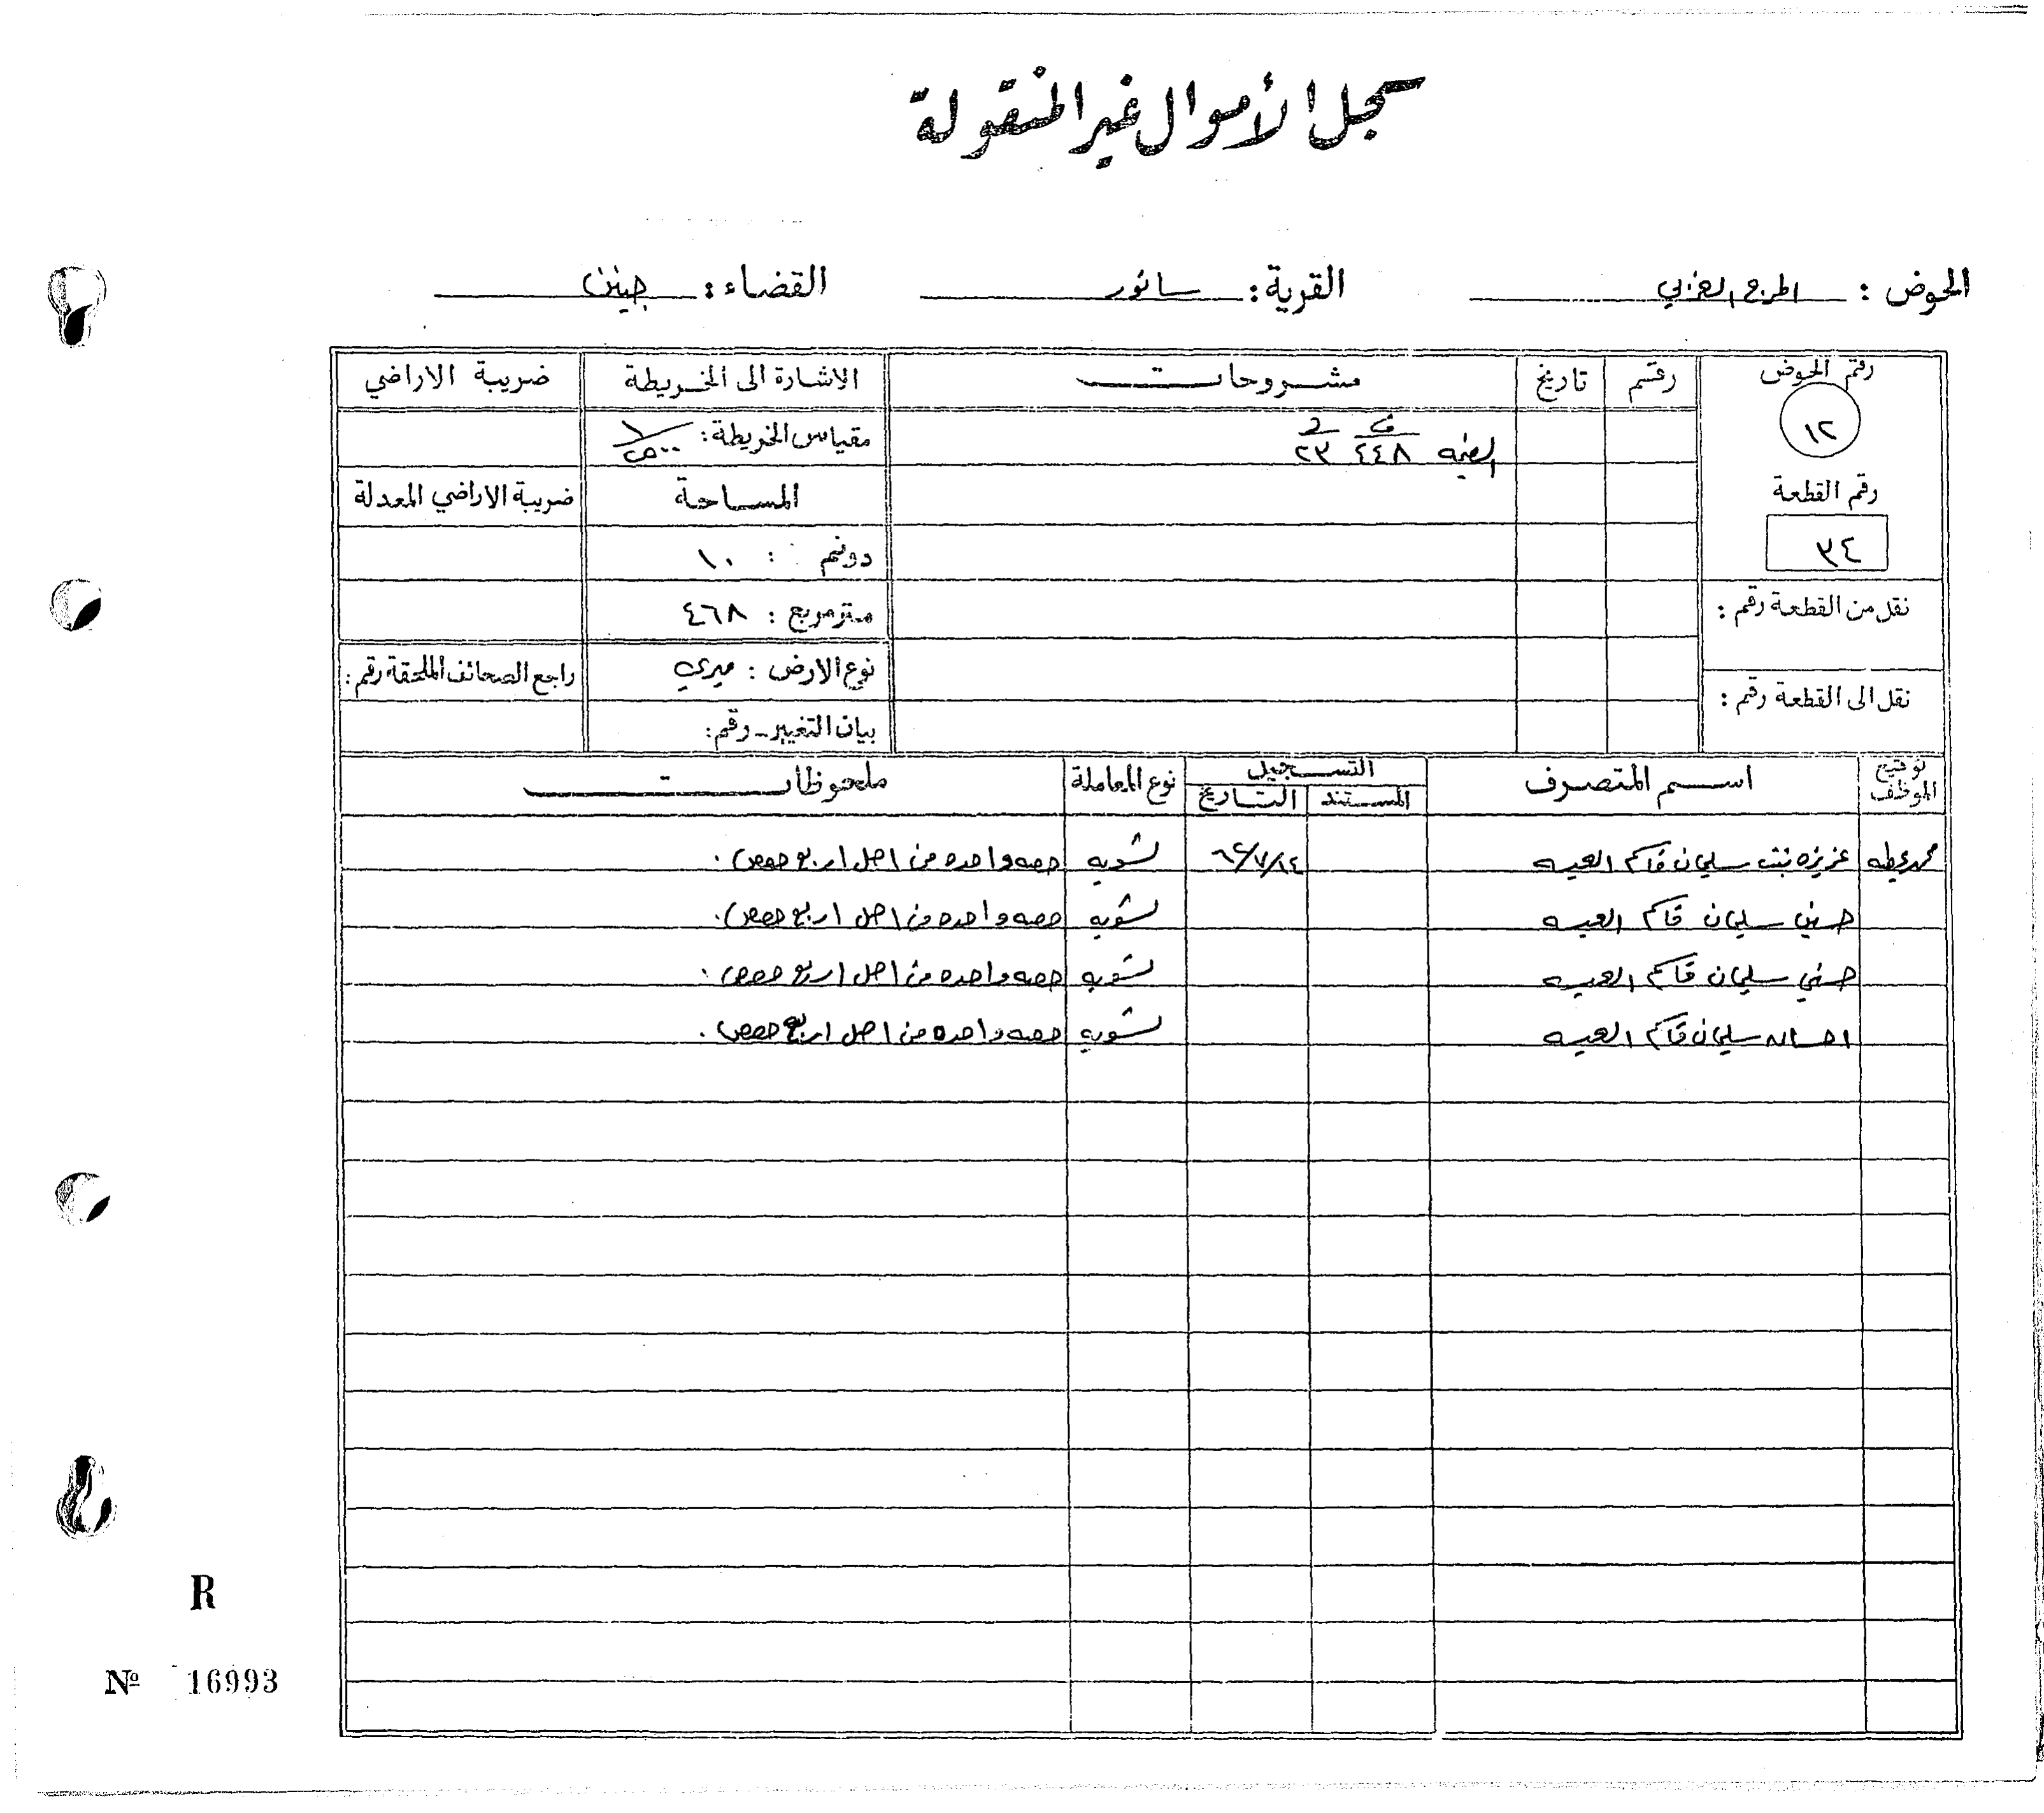 سجل الأموال غير المنقولة
الحوض : المرج الغربي القرية : سانور القضاء : جنين
رقم الحوض رقم تاريخ مشروحات الاشارة الى الخريطة ضريبة الاراضي
١٢ القيمه ف ٤٤٨ د ٢٣ مقياس الخريطة : ١/٢٥٠٠
رقم القطعة المساحة ضريبة الاراضي المعدلة
٣٤ دونم : ١٠
نقل من القطعة رقم : متر مربع : ٤٦٨
نوع الارض : ميري راجع الصحائف الملحقة رقم :
نقل الى القطعة رقم : بيان التغيير - رقم :
توقيع الموظف اسم المتصرف التسجيل نوع المعاملة ملحوظات
المستند التاريخ
عزيزه بنت سليمان قاسم العيسه ٦٤/٧/١٤ تسويه حصه واحده من اصل اربع حصص .
حسين سليمان قاسم العيسه تسويه حصه واحده من اصل اربع حصص .
حسني سليمان قاسم العيسه تسويه حصه واحده من اصل اربع حصص .
احسان سليمان قاسم العيسه تسويه حصه واحده من اصل اربع حصص .
R
Nº 16993